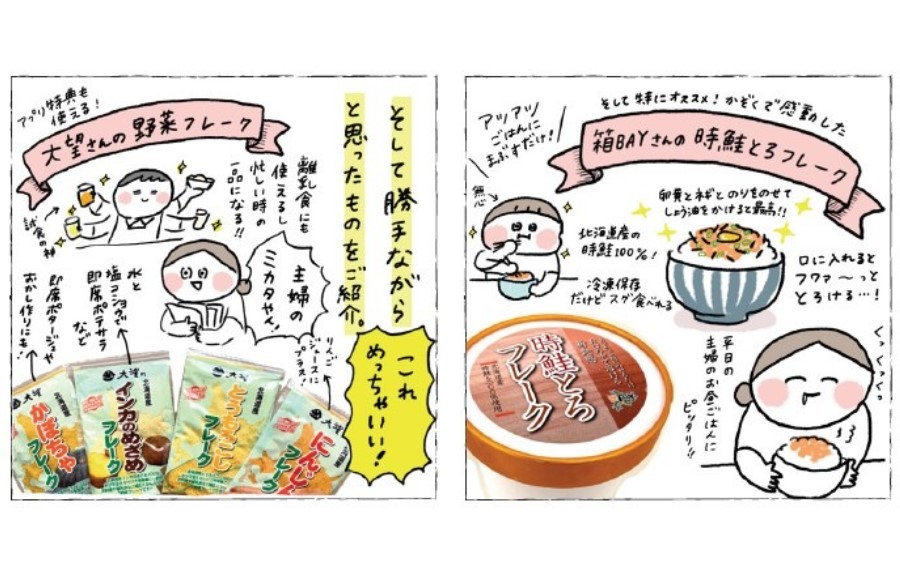 そして勝手ながら
と思ったものをご紹介。
これ
めっちゃいい!
アプリ特典も
使える!
大望さんの野菜フレーク
離乳食にも
使えるし
忙しい時の
一品になる!!
試食の神
主婦の
ミカタやん!
りんご
ジュースに
プラス!
水と
塩コショウで
即席ポテサラ
など
即席ポタージュや
おかし作りにも!
大望
かぼちゃ
フレーク
大望の
インカのめざめ
フレーク
大望
とうもろこし
フレーク
大望
にんじん
フレーク
そして特にオススメ!かぞくで感動した
箱BAYさんの時鮭とろフレーク
アツアツ
ごはんに
まぶすだけ!
無心
卵黄とネギとのりをのせて
しょう油をかけると最高!!
北海道産の
時鮭100%!
冷凍保存
だけどスグ食べれる
口に入れると
フワァ〜っと
とろける…!
くっくっくっ
平日の
主婦のお昼ごはんに
ピッタリ!!
時鮭とろ
フレーク